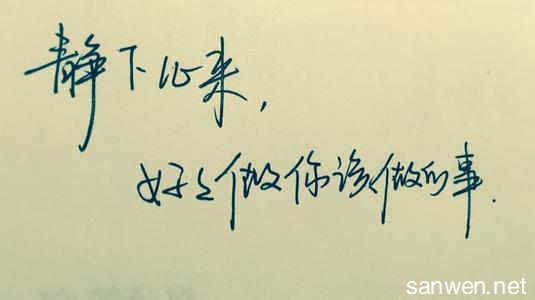 静下心来,
好好做你该做的事.
sanwen.net